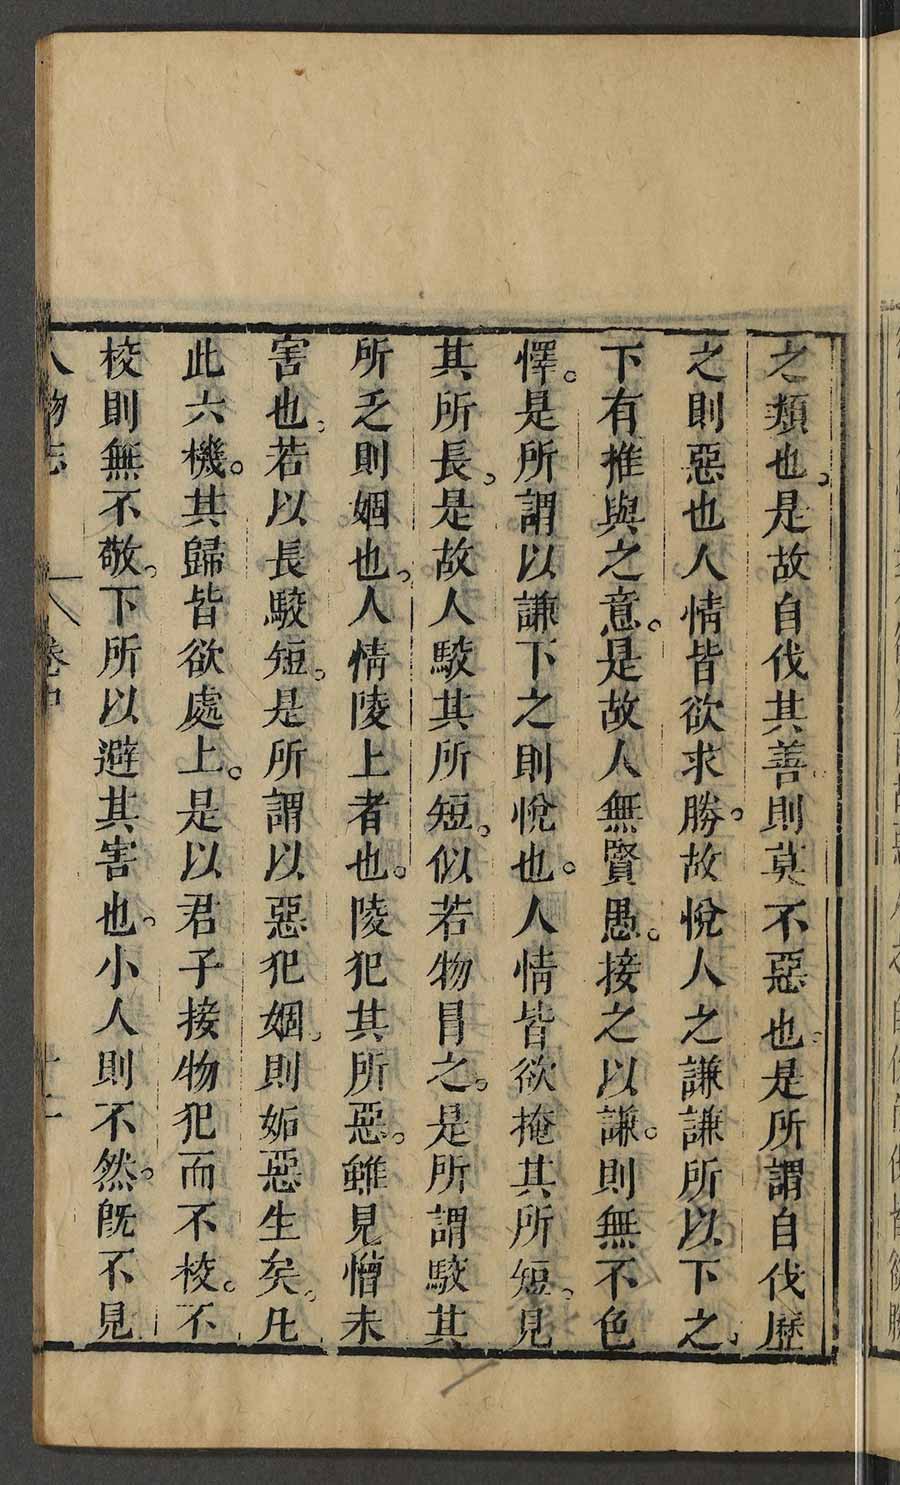 之類也。是故自伐其善則莫不惡也是所謂自伐歷
之則惡也人情皆欲求勝。故悅人之謙謙所以下之。
下有推與之意。是故人無賢愚。接之以謙。則無不色
懌。是所謂以謙下之則悅也。人情皆欲掩其所短。見
其所長。是故人駮其所短。似若物冐之。是所謂駮其
所乏則婟也。人情陵上者也。陵犯其所惡。雖見憎未
害也。若以長駮短。是所謂以惡犯婟。則妬惡生矣。凡
此六機。其歸皆欲處上。是以君子接物犯而不校。不
校則無不敬。下所以避其害也。小人則不然。旣不見
人物志 卷中